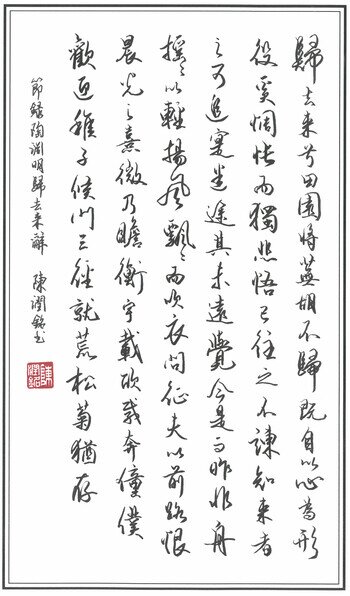 歸去来兮田園將蕪胡不歸既自以心為形
役奚惆悵而獨悲悟已往之不諫知来者
之可追寔迷途其未遠覺今是而昨非舟
搖〻以輕揚風飄〻而吹衣問征夫以前路恨
晨光之熹微乃瞻衡宇載欣載奔僮僕
歡迎稚子候門三徑就荒松菊猶存
節錄陶淵明歸去来辭 陳潤銘书
陳潤銘